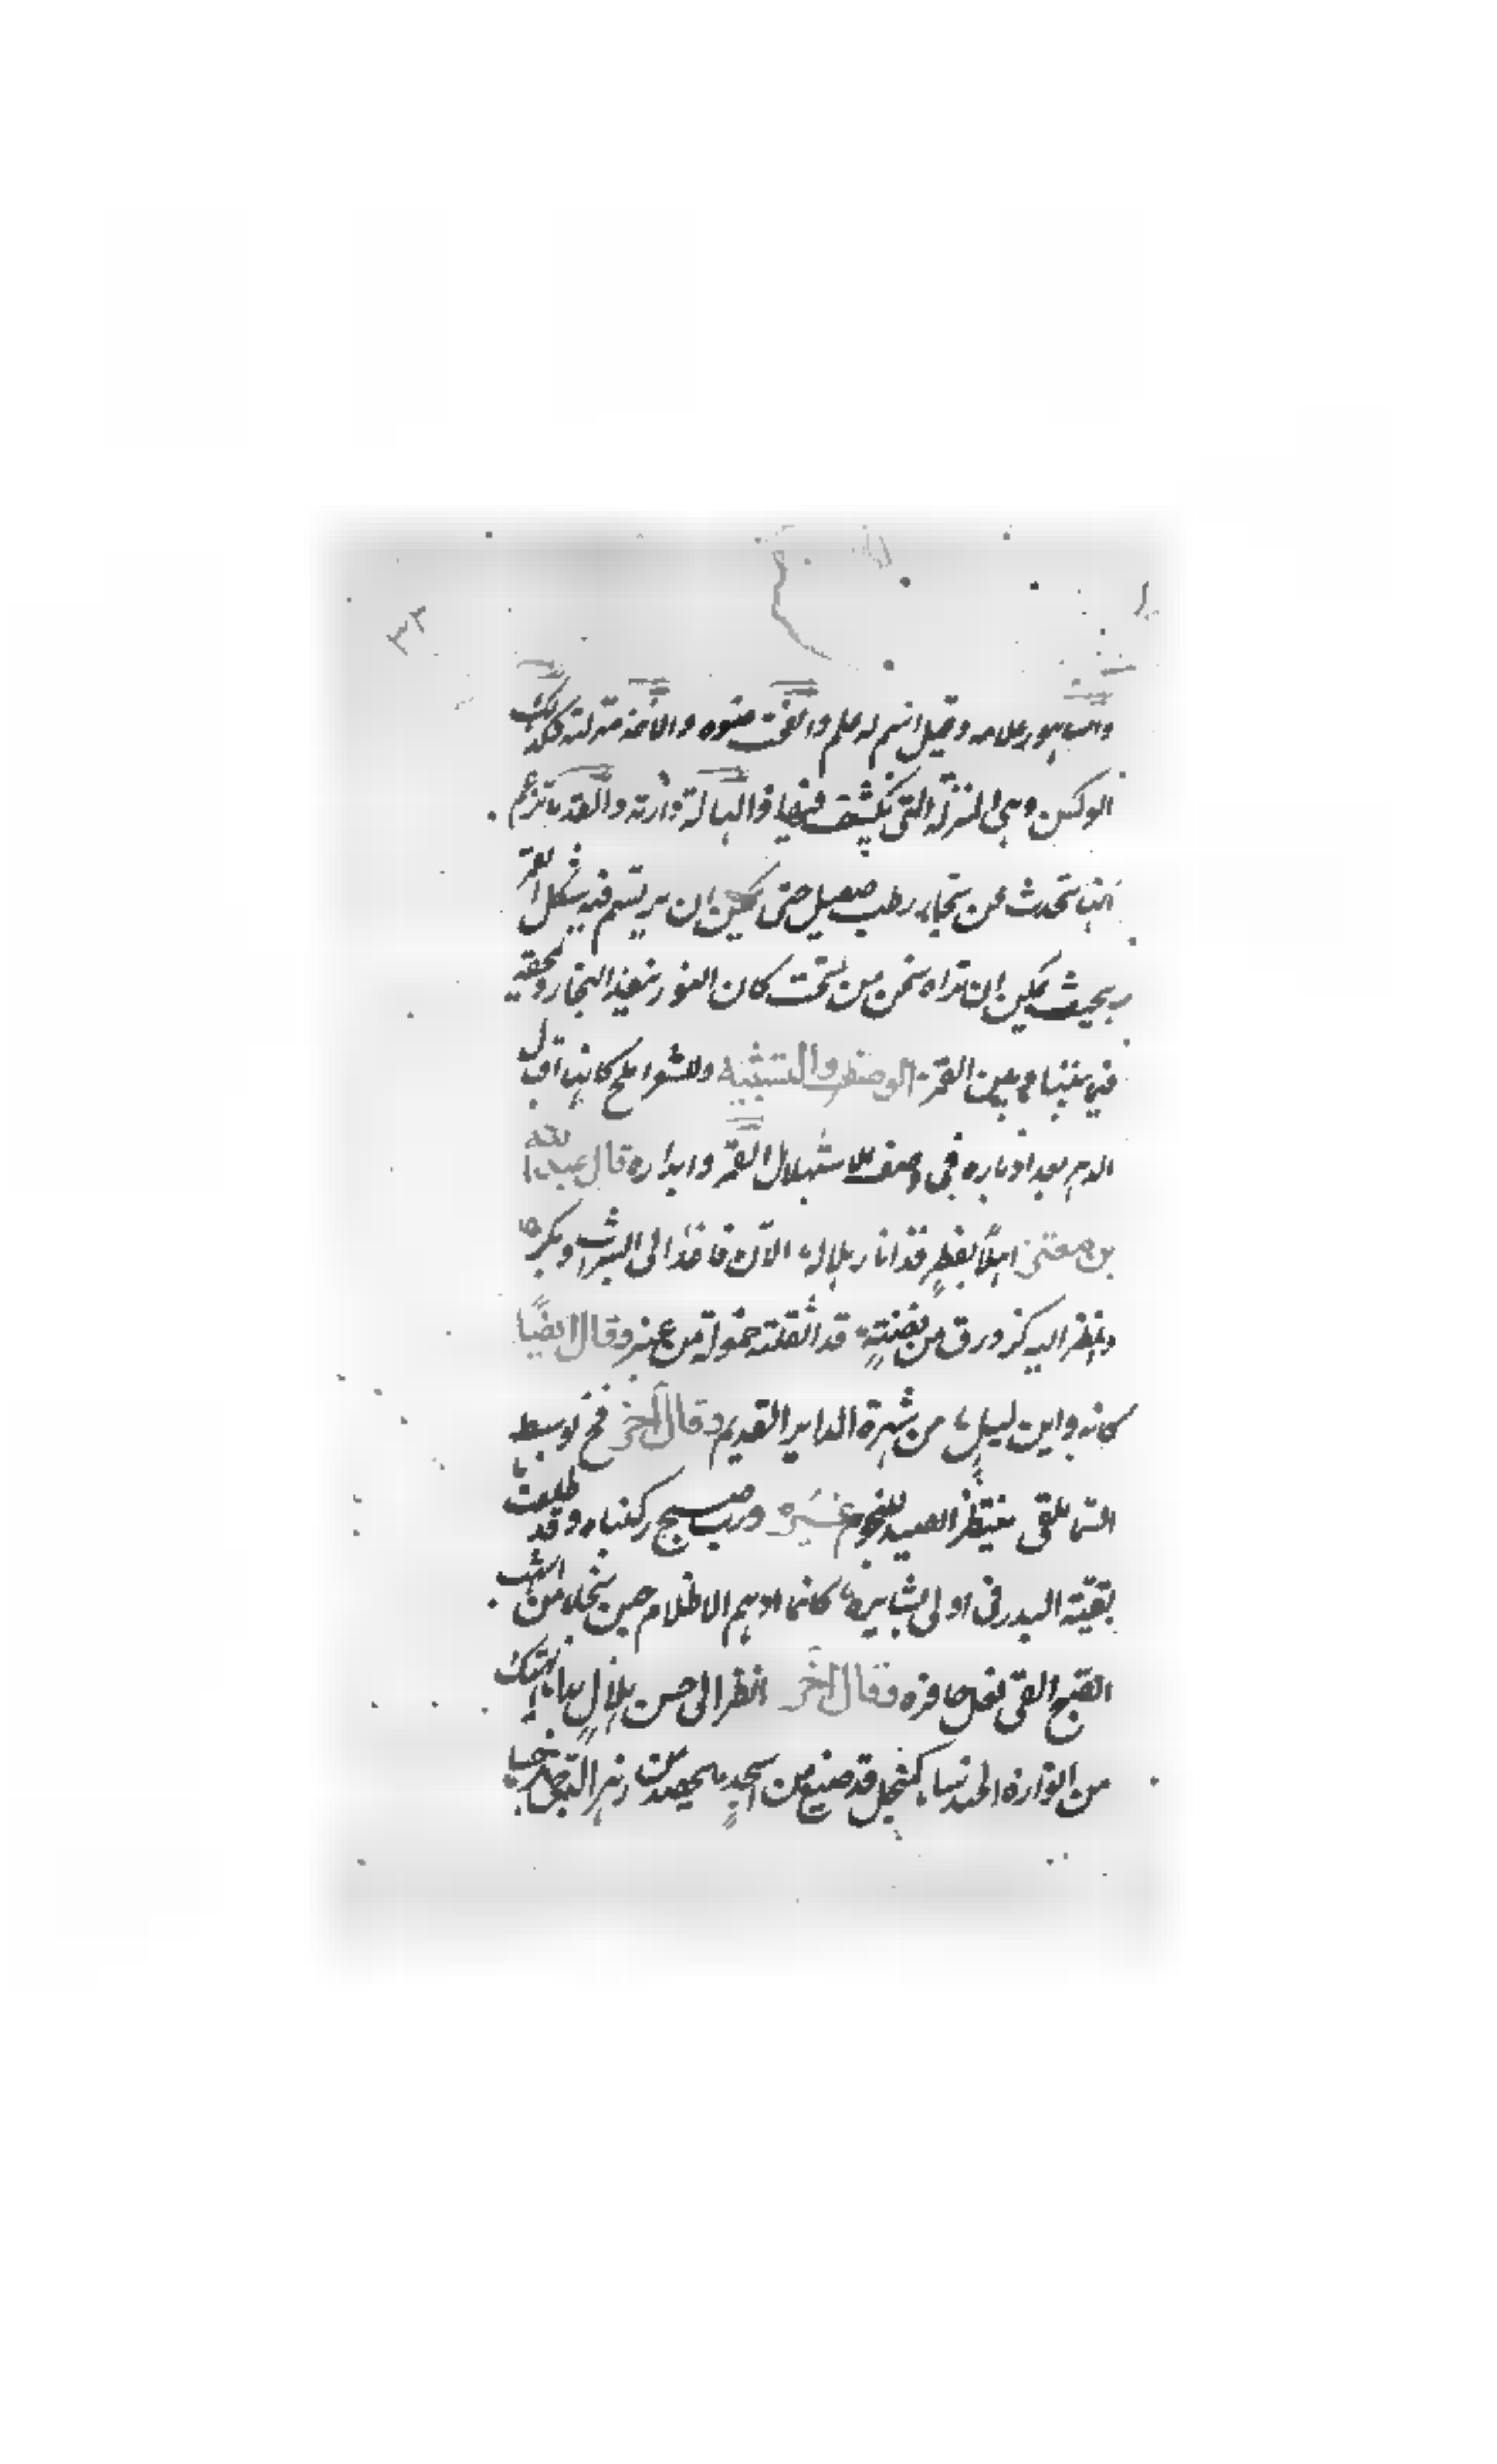 ٣٢
والساهور غلافه وقيل اسم له علم والفخت ضوه والاخذ منزلته وكذلك
الوكس وهى المنزلة التى يكسف فيها والهالة دارته والفلاسفة تزعم
انها تحدث عن بخار رطب صقيل حتى يمكن ان يرتسم فيه شكل القمر
بحيث يمكن ان نراه نحن من تحت كان النور ينفذ البخار ويخفيه
فى بيننا وبين القمر الوصف والتشبيه وللشعرا ملح كانها اقبال
الدهر بعد ادباره فى وصف للاستهلال القمر وابداره قال عبد الله
بن معتز اهلا بفطر قد انار هلاله الآن فاغد الى الشراب وبكر
وانظر اليه كزورق من فضة قد اثقلته حمولة من عنبر وقال ايضا
كانه وابن ليل من شهرة الداير القديم وقال آخر فخ توسط
السما ملقى ينتظر الصيد للنجوم غيره ورب صبح ركبناه وقد طلعت
بقية البدر فى اولى تباشيره كانما ادهم الاظلام حين نجا من اشهب
الصبح القى نعل حافره وقال آخر انظر الى حسن هلال بدا يهتك
من انواره الحندسا كمنجل قد صيغ من عسجد يحصد من زهر الدجى نرجسا